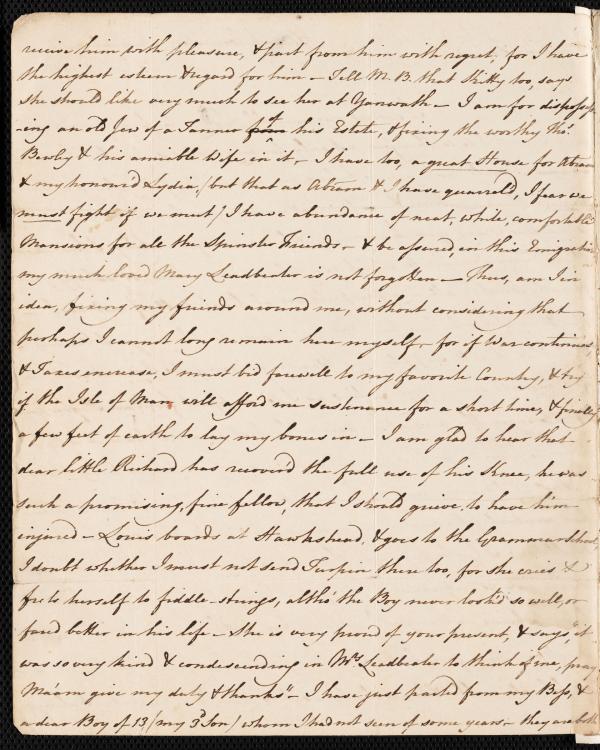 receive him with pleasure, & part from him with regret; for I have
the highest esteem & regard for him — Tell M. B. that Kitty too, says
she should like very much to see her at Yarwath — I am for dispossess
-ing an old Jew of a Tanner of his Estate, & fixing the worthy Thos.
Bewly & his amiable Wife in it — I have too, a great House for Abram
& my honour'd Lydia, (but that as Abram & I have quarrel'd, I fear we
must fight if we meet) I have abundance of neat, white, comfortable
Mansions for all the Spinster Friends — & be assured, in this Emigration
my much loved Mary Leadbeater is not forgotten — Thus, am I in
idea, fixing my friends around me, without considering that
perhaps I cannot long remain here myself — for if War continues,
& Taxes increase, I must bid farewell to my favorite Country, & try
if the Isle of Man will afford me sustenance for a short time, & finally
a few feet of earth to lay my bones in — I am glad to hear that
dear little Richard has recover'd the full use of his Knee, he was
such a promising, fine fellow, that I should grieve, to have him
injured — Louis boards at Hawkshead, & goes to the Grammar School,
I doubt whether I must not send Turpin there too, for she cries &
frets herself to fiddle-strings, altho' the Boy never look'd so well, or
fared better in his life — She is very proud of your present, & says, "it
was so very kind & condescending in Mrs. Leadbeater to think of me, pray
Ma'am give my duty & thanks" — I have just parted from my Bess, &
a dear Boy of 13, (my 3d Son) whom I had not seen of some years — they are both